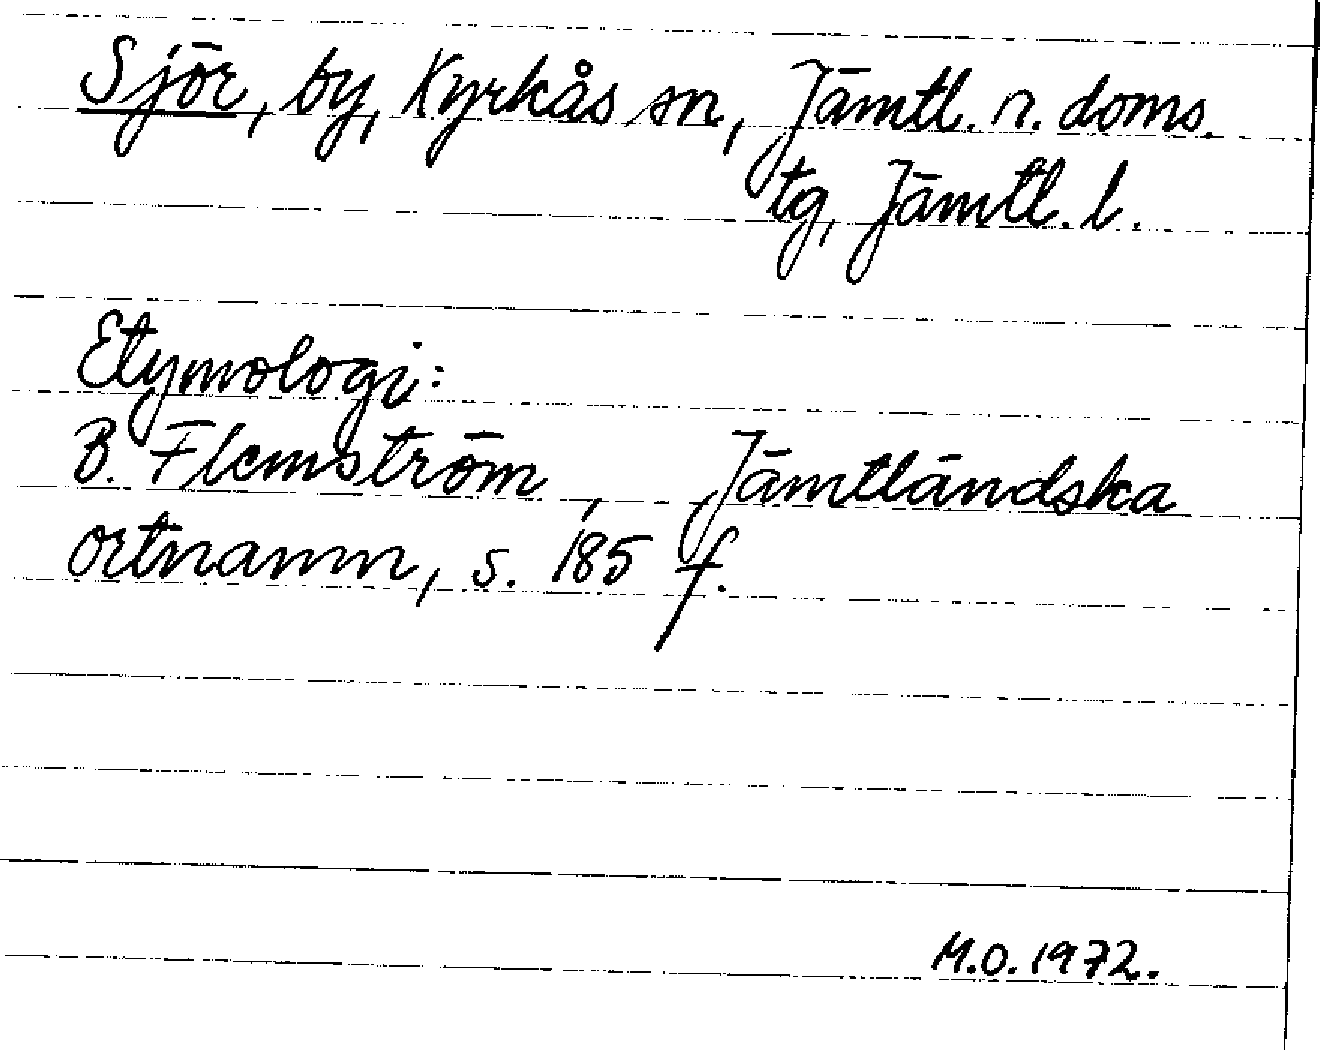 Sjör, by, Kyrkås sn, Jämtl. n. doms.
tg, Jämtl. l.
Etymologi:
B. Flemström, Jämtländska
ortnamn, s. 185 f.
M.O. 1972.